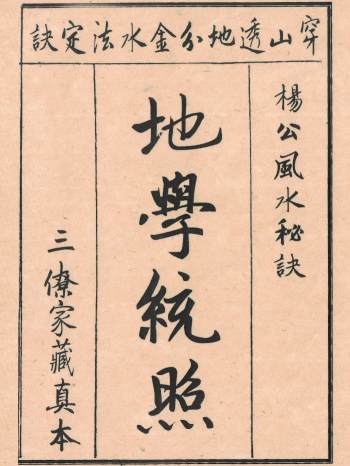 穿山透地分金水法定訣
楊公風水秘訣
地學統照
三僚家藏真本